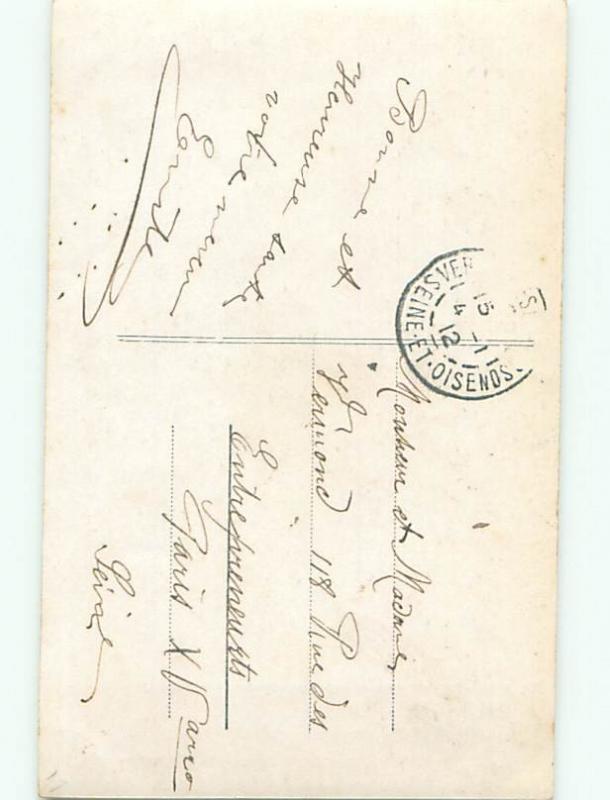 Bonne et
Heureuse fête
votre neveu
Emile
Monsieur et Madame
Vermond 118 Rue des
Entrepreneurts
Paris XV arro
Seine
SEINE-ET-OISE
15 -1
4
12